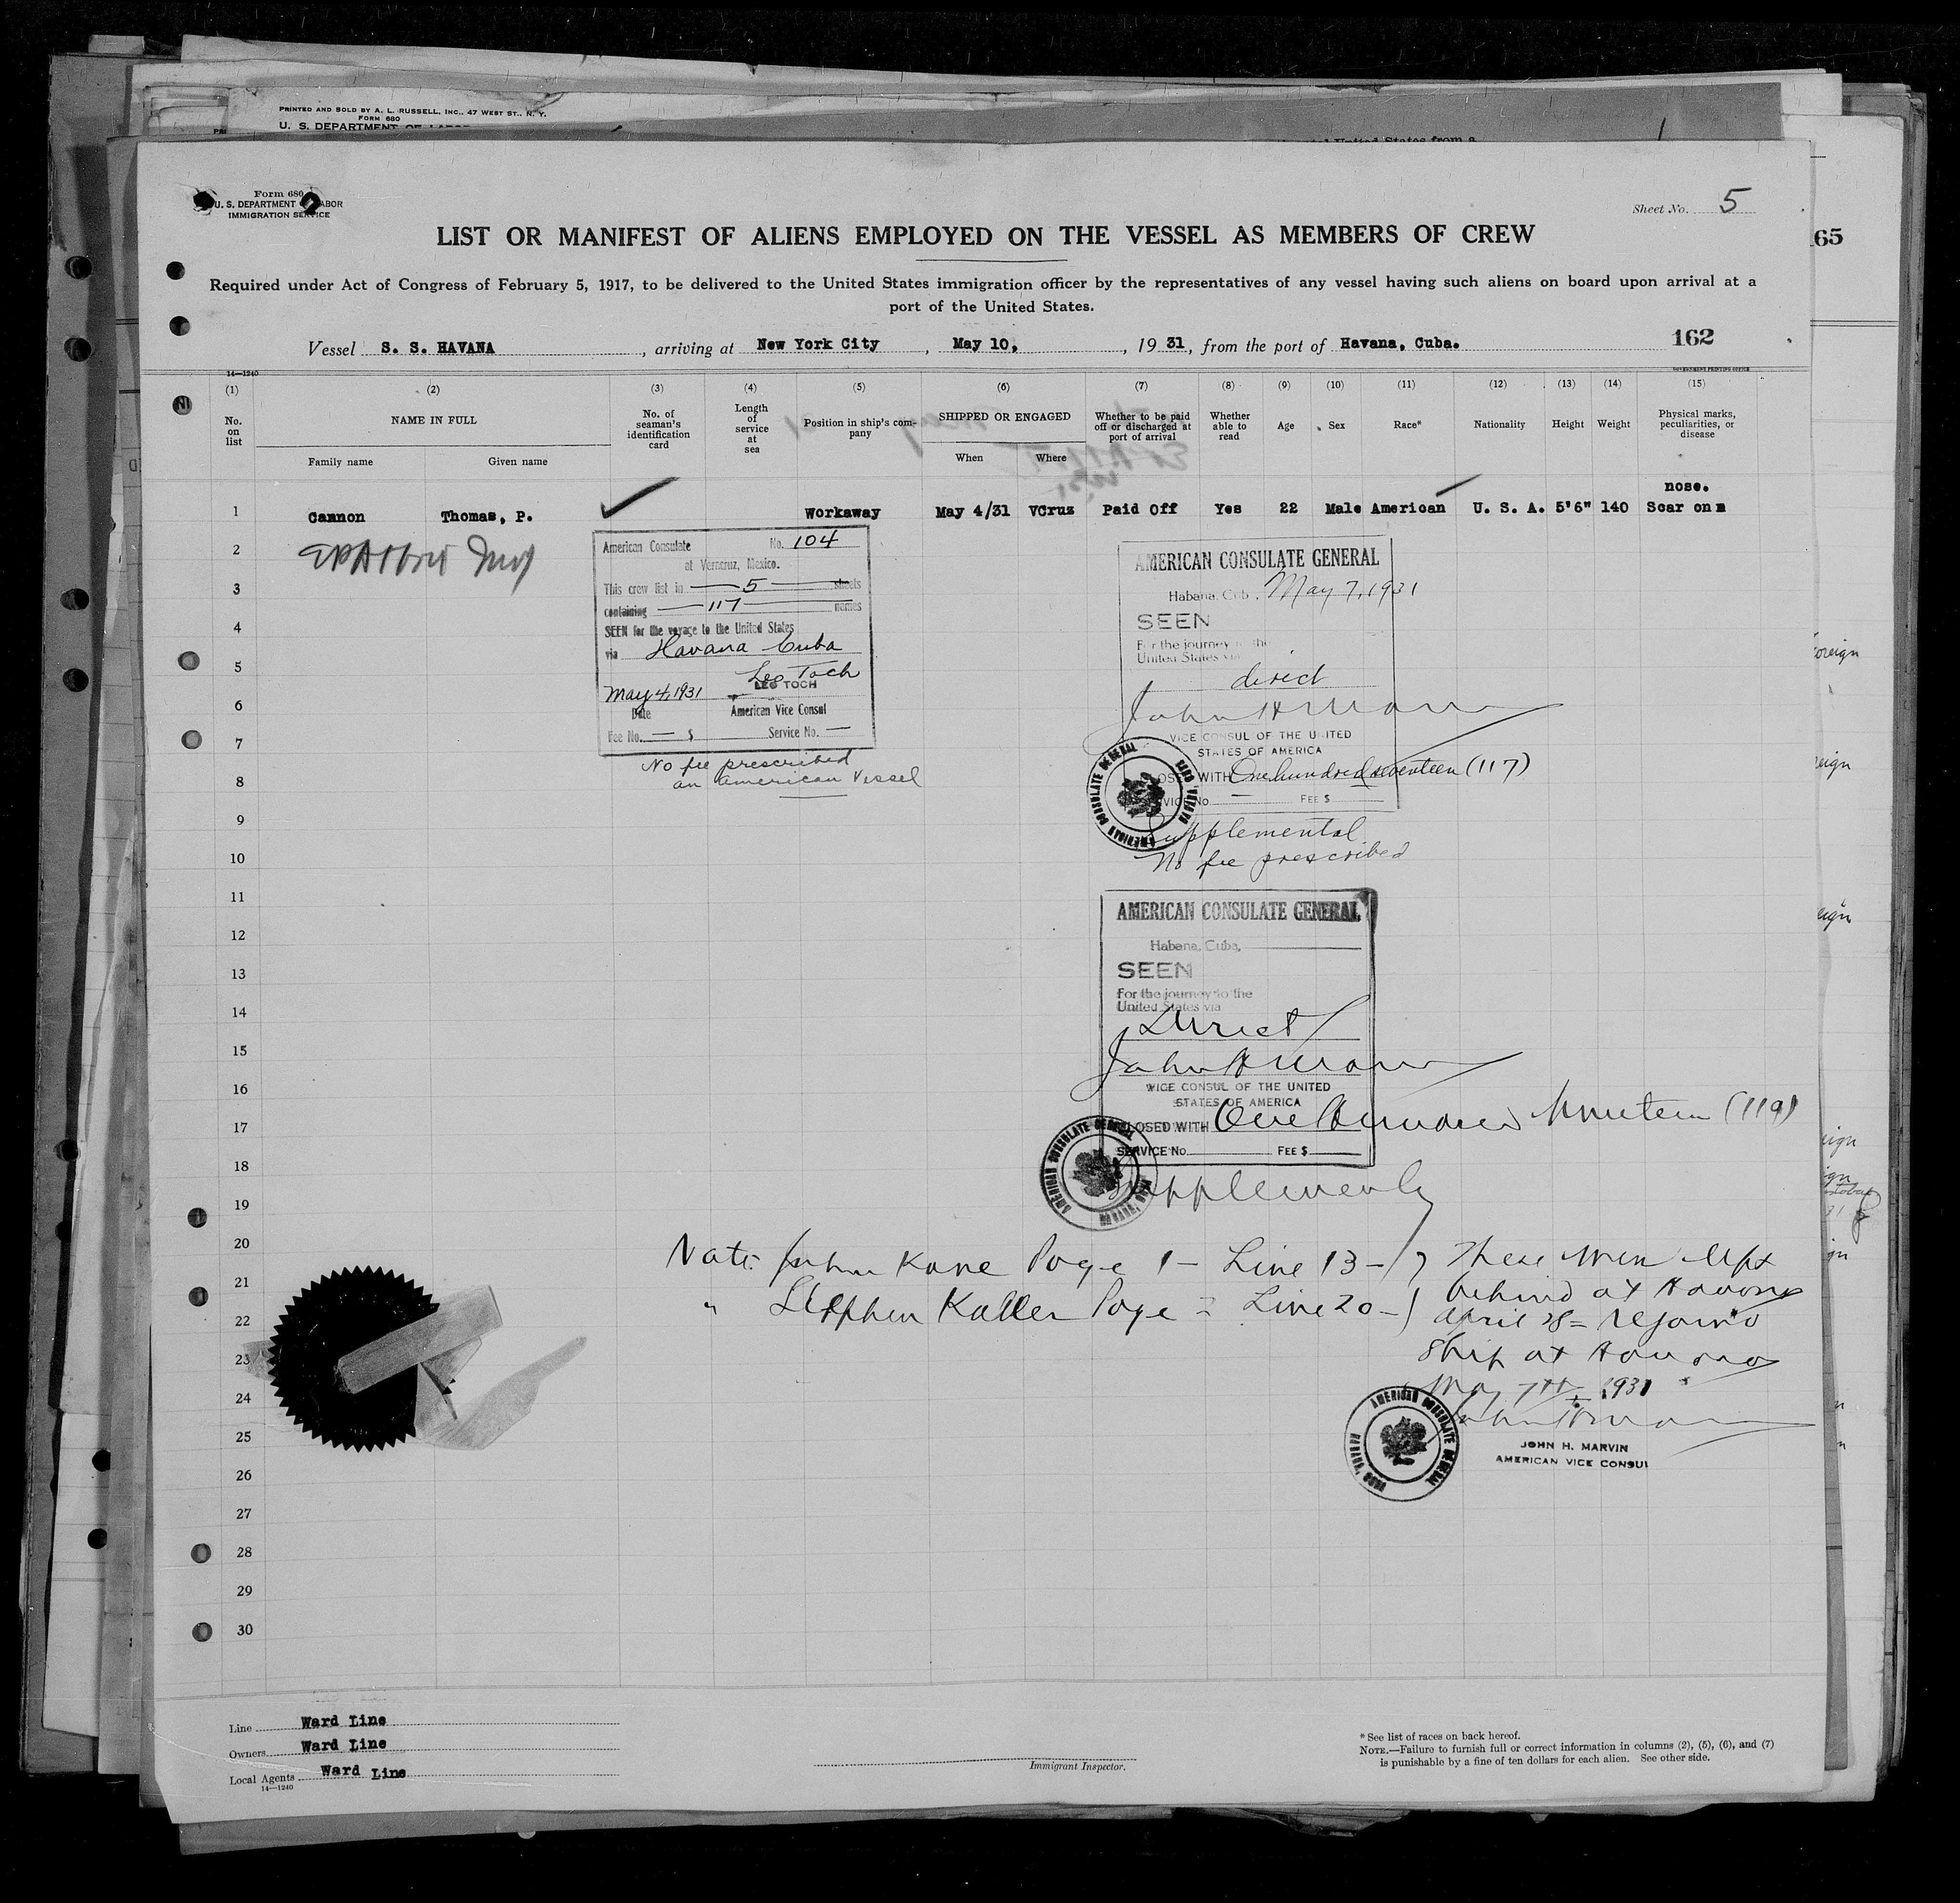 PRINTED AND SOLD BY A. L. RUSSELL, INC., 47 WEST ST., N. Y.
FORM 680
U. S. DEPARTMENT OF LABOR
65
Form 680
U. S. DEPARTMENT OF LABOR
IMMIGRATION SERVICE
Sheet No. 5
LIST OR MANIFEST OF ALIENS EMPLOYED ON THE VESSEL AS MEMBERS OF CREW
Required under Act of Congress of February 5, 1917, to be delivered to the United States immigration officer by the representatives of any vessel having such aliens on board upon arrival at a
port of the United States.
Vessel S. S. HAVANA, arriving at New York City, May 10, , 19 31, from the port of Havana, Cuba.
162
14—1240
GOVERNMENT PRINTING OFFICE
(1) (2) (3) (4) (5) (6) (7) (8) (9) (10) (11) (12) (13) (14) (15)
No. on list
NAME IN FULL
Family name Given name
No. of seaman's identification card
Length of service at sea
Position in ship's company
SHIPPED OR ENGAGED
When Where
Whether to be paid off or discharged at port of arrival
Whether able to read
Age
Sex
Race*
Nationality
Height
Weight
Physical marks, peculiarities, or disease
nose.
1 Cannon Thomas, P. Workaway May 4/31 VCruz Paid Off Yes 22 Male American U. S. A. 5'6" 140 Scar on
2
3
4
5
6
7
8
9
10
11
12
13
14
15
16
17
18
19
20
21
22
23
24
25
26
27
28
29
30
American Consulate No. 104
at Veracruz, Mexico.
This crew list in 5 sheets
containing 117 names
SEEN for the voyage to the United States
via Havana Cuba
Leo Toch
May 4, 1931 LEO TOCH
Date American Vice Consul
Fee No. — $ Service No. —
No fee prescribed
an American Vessel
AMERICAN CONSULATE GENERAL
Habana, Cuba, May 7, 1931
SEEN
For the journey to the
United States via
direct
VICE CONSUL OF THE UNITED
STATES OF AMERICA
CLOSED WITH One hundred seventeen (117)
SERVICE No. FEE $
Supplemental
No fee prescribed
AMERICAN CONSULATE GENERAL, HABANA, CUBA
AMERICAN CONSULATE GENERAL
Habana, Cuba,
SEEN
For the journey to the
United States via
Direct
VICE CONSUL OF THE UNITED
STATES OF AMERICA
CLOSED WITH One Hundred Nineteen (119)
SERVICE No. FEE $
AMERICAN CONSULATE GENERAL
Note: John Kane Page 1 - Line 13 - } These men left
" Stephen Page 2 Line 20 - } behind at Havana
April 28 = rejoined
ship at Havana
May 7th, 1931
JOHN H. MARVIN
AMERICAN VICE CONSUL
AMERICAN CONSULATE GENERAL
Line Ward Line
Owners Ward Line
Local Agents Ward Line
14—1240
Immigrant Inspector.
* See list of races on back hereof.
NOTE.—Failure to furnish full or correct information in columns (2), (5), (6), and (7)
is punishable by a fine of ten dollars for each alien. See other side.